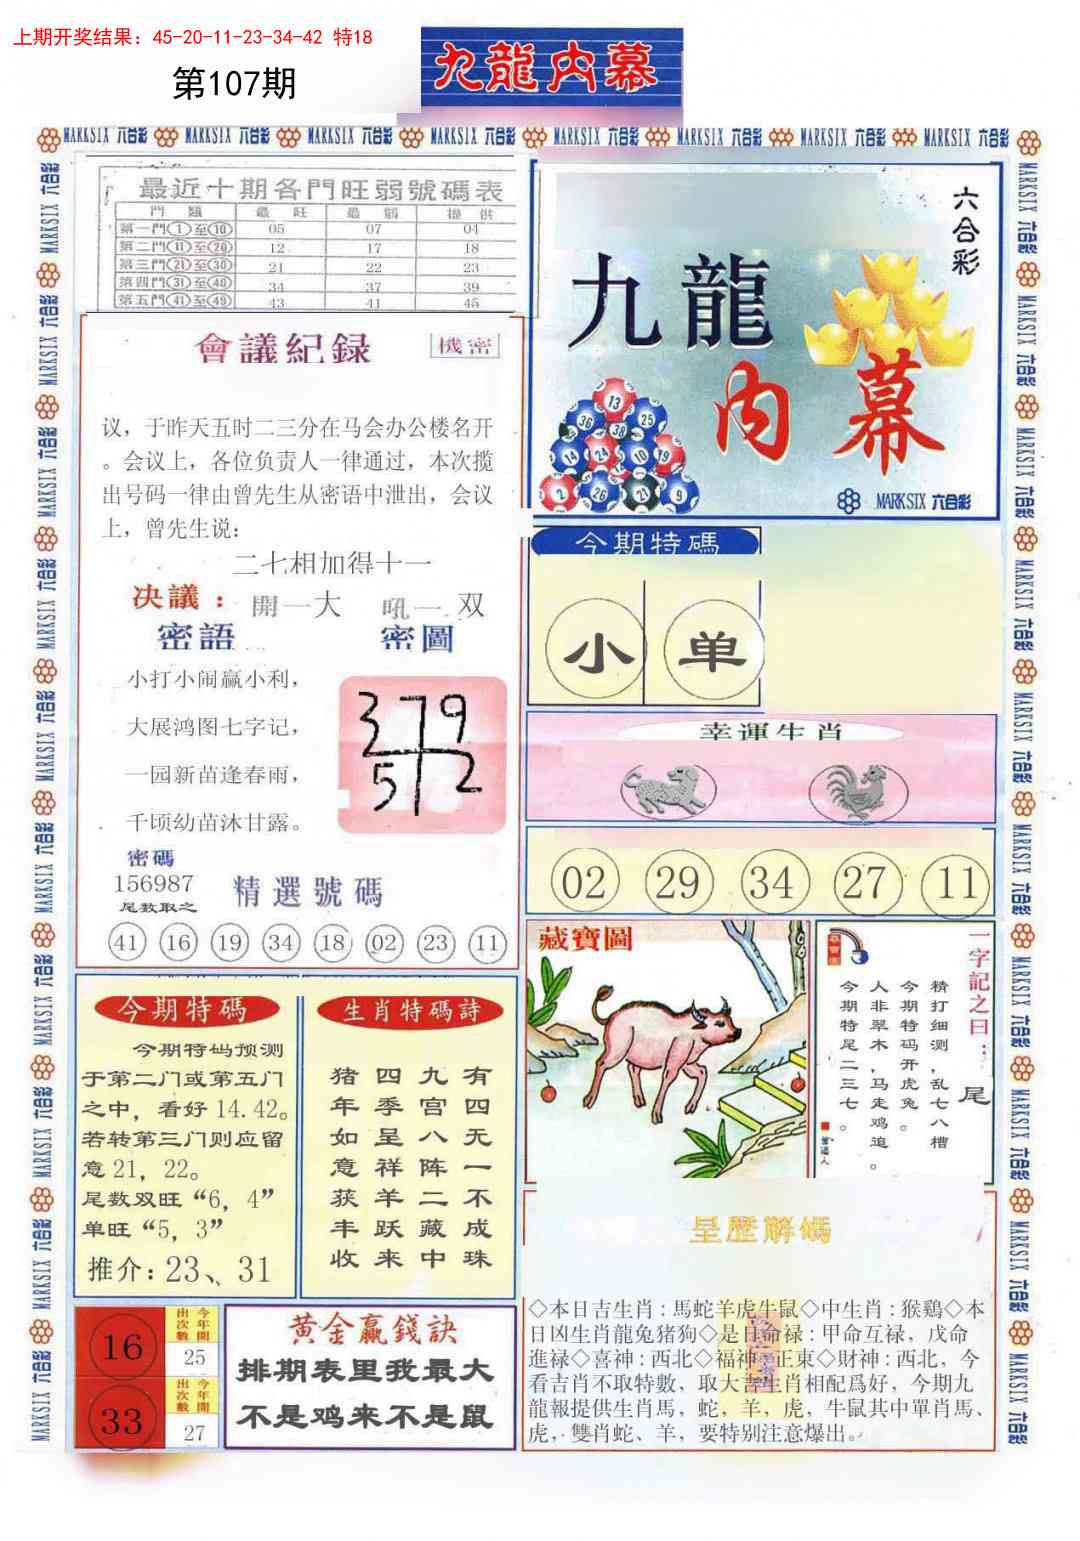 上期开奖结果：45-20-11-23-34-42 特18
第107期
九龍内幕
MARKSIX 六合彩 MARKSIX 六合彩 MARKSIX 六合彩 MARKSIX 六合彩 MARKSIX 六合彩 MARKSIX 六合彩 MARKSIX 六合彩 MARKSIX 六合彩
最近十期各門旺弱號碼表
門 類 最 旺 最 弱 提 供
第一門①至⑩ 05 07 04
第二門⑪至⑳ 12 17 18
第三門㉑至㉚ 21 22 23
第四門㉛至㊵ 34 37 39
第五門㊶至㊾ 43 41 45
會議紀録
機密
议，于昨天五时二三分在马会办公楼名开
。会议上，各位负责人一律通过，本次揽
出号码一律由曾先生从密语中泄出，会议
上，曾先生说：
二七相加得十一
决議：開一大 吼一双
密語 密圖
小打小闹赢小利，
大展鸿图七字记，
一园新苗逢春雨，
千顷幼苗沐甘露。
379
5 2
密碼
156987
尾数取之
精選號碼
41 16 19 34 18 02 23 11
六合彩
九龍
内幕
13
36 38 25
14 24 10 19
2 26 21 9
MARKSIX 六合彩
今期特碼
小 单
幸運生肖
02 29 34 27 11
藏寶圖
一字記之日：尾
精打细测，乱七八槽
今期特码开虎兔。
人非翠木，马走鸡追。
今期特尾二三七。
今期特碼
今期特码预测
于第二门或第五门
之中，看好14.42。
若转第三门则应留
意21，22。
尾数双旺“6，4”
单旺“5，3”
推介：23、31
生肖特碼詩
猪 四 九 有
年 季 宫 四
如 呈 八 无
意 祥 阵 一
获 羊 二 不
丰 跃 藏 成
收 来 中 珠
16
今年開
出次數
25
33
今年開
出次數
27
黄金赢錢訣
排期表里我最大
不是鸡来不是鼠
呈歷解碼
◇本日吉生肖：馬蛇羊虎牛鼠◇中生肖：猴鷄◇本
日凶生肖龍兔猪狗◇是日命禄：甲命互禄，戊命
進禄◇喜神：西北◇福神：正東◇財神：西北，今
看吉肖不取特數，取大吉生肖相配爲好，今期九
龍報提供生肖馬，蛇，羊，虎，牛鼠其中單肖馬、
虎，雙肖蛇、羊，要特别注意爆出。